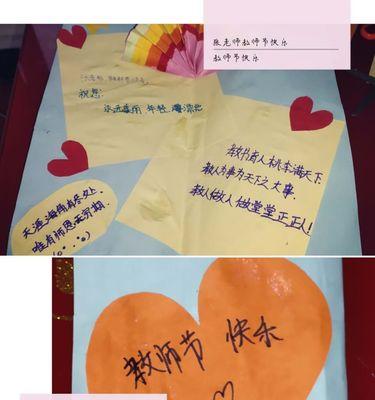 张老师教师节快乐
教师节快乐
祝您:
永远 年轻
教书育人桃李满天下
教人为事为天下之大事.
教人做人做堂堂正正人!
天涯海角有尽处,
唯有师恩无穷期.
教师节 快乐